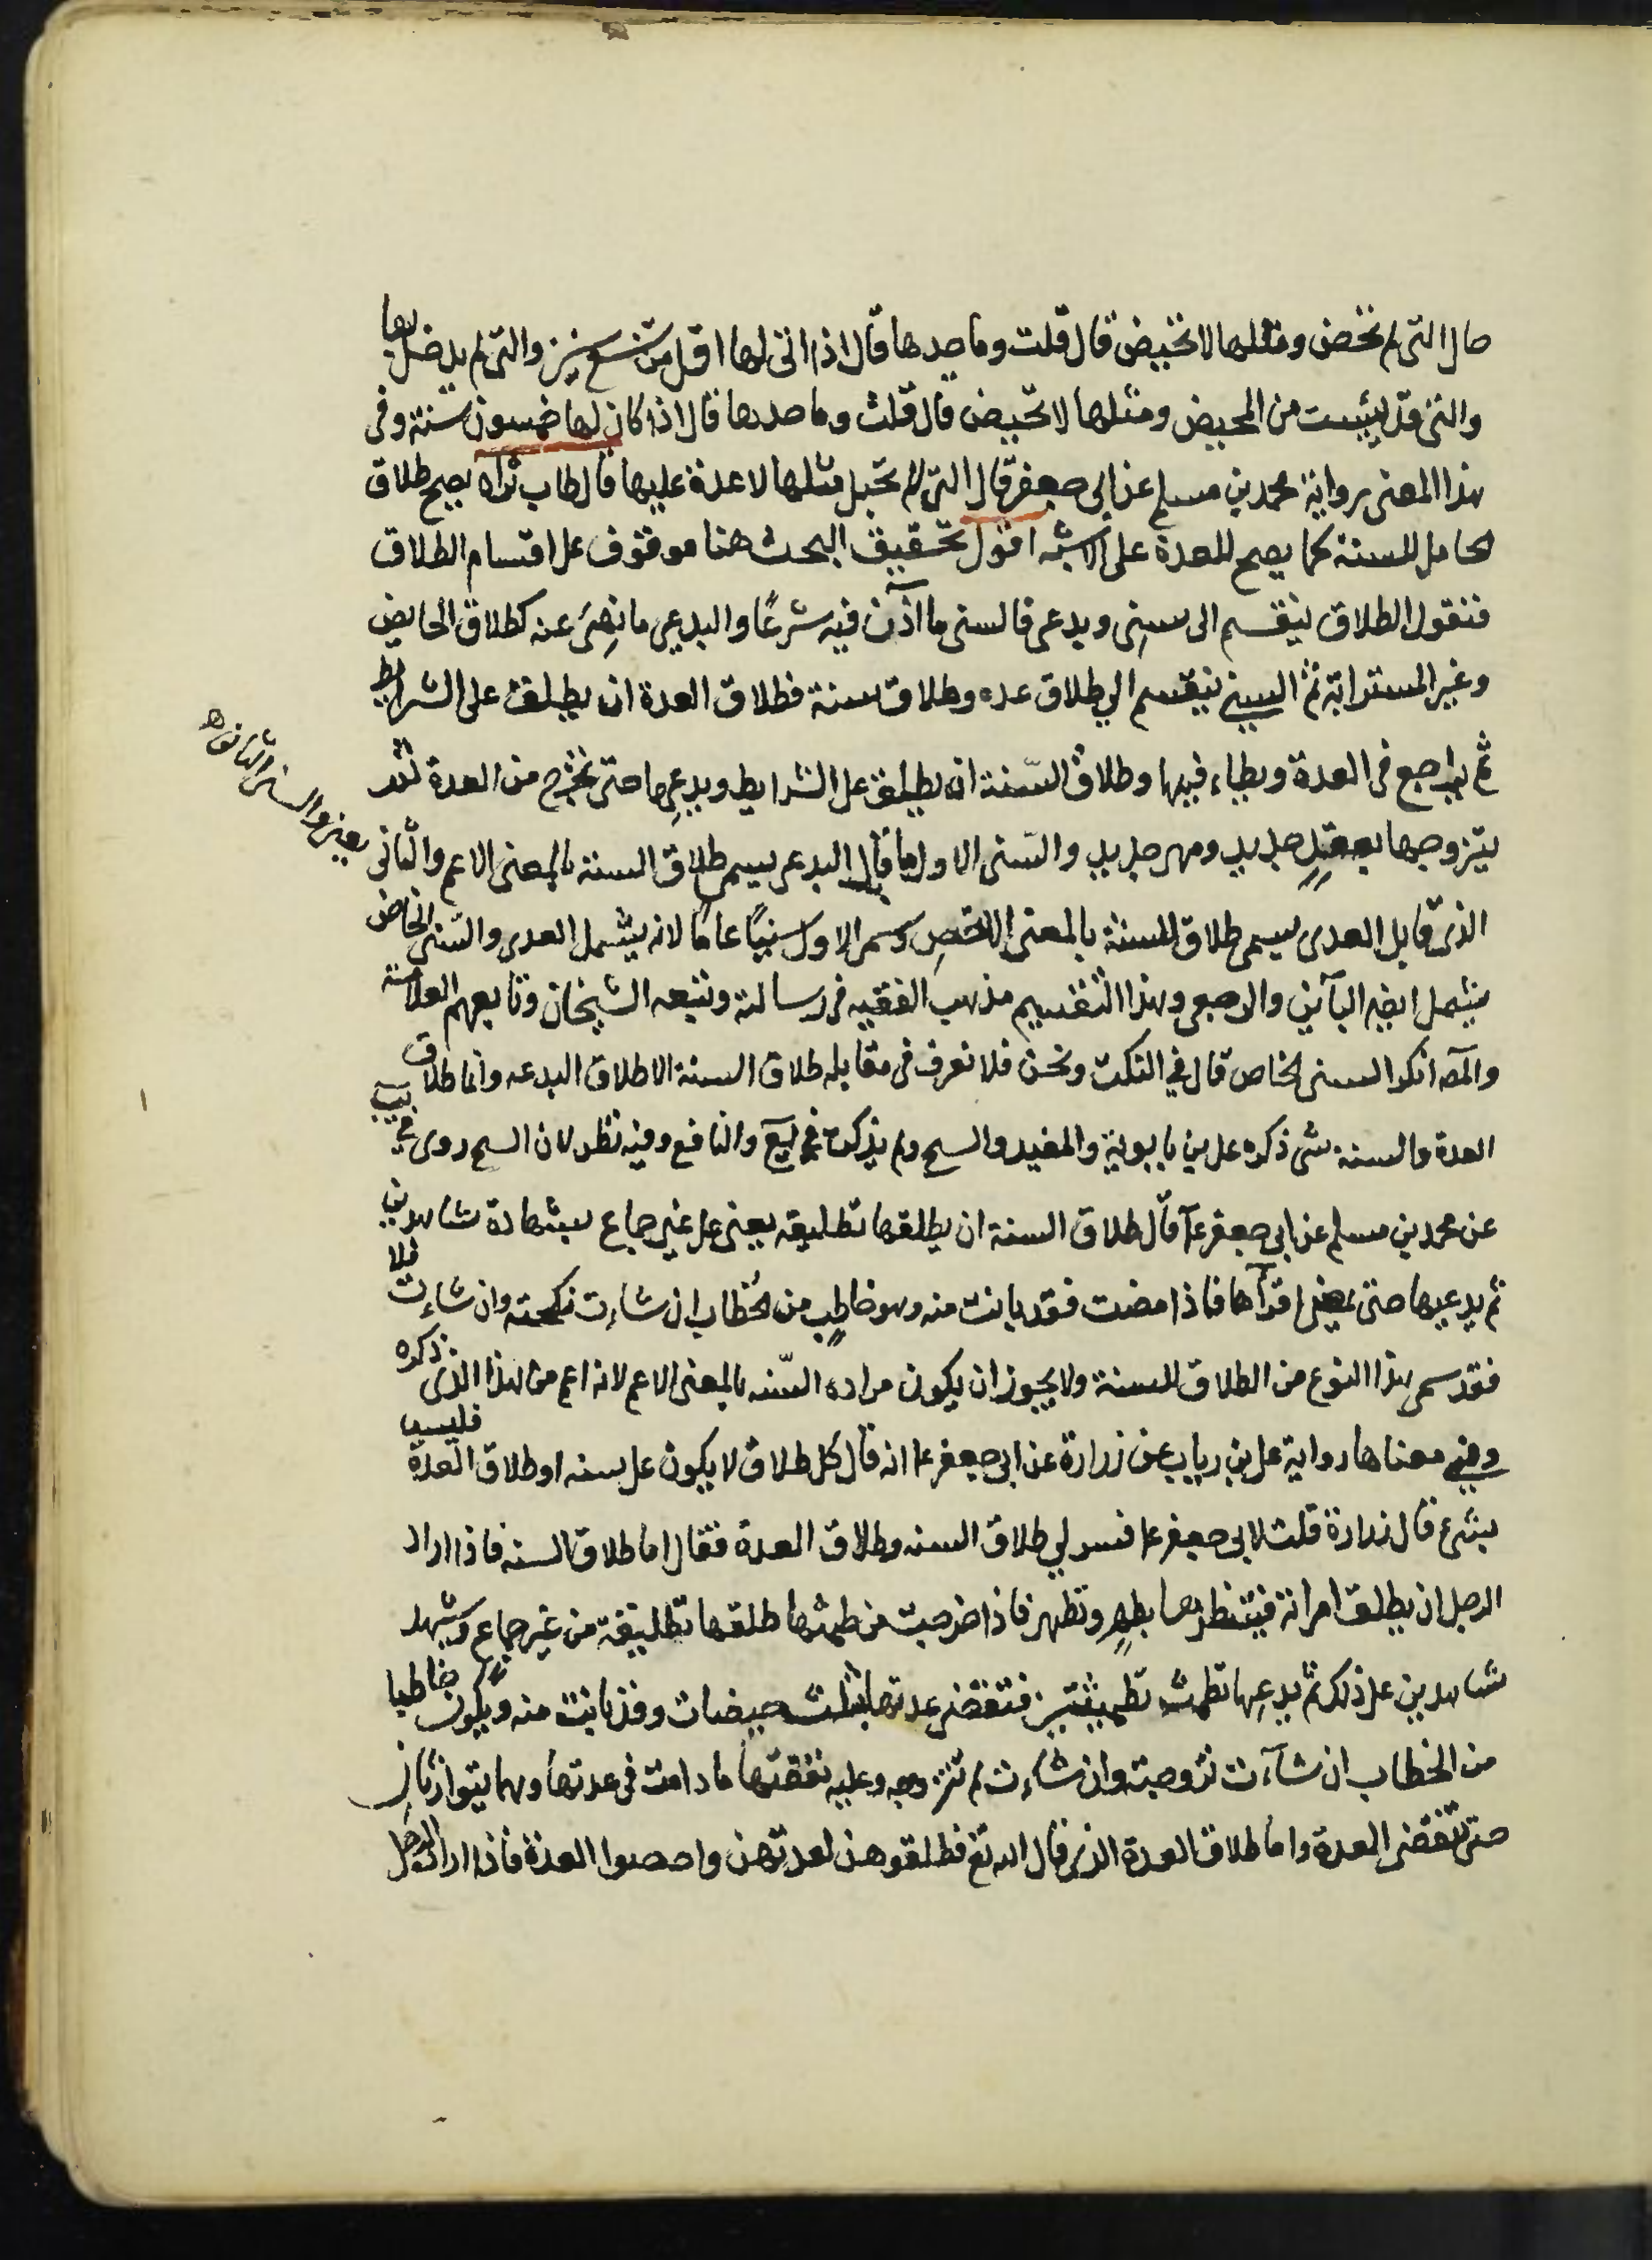 حال التى لم تحض ومثلها لا تحيض قال قلت وما حدها قال اذا اتى لها اقل من تسع سنين والتى لم يدخل بها
والتى قد يئست من المحيض ومثلها لا تحيض قال قلت وما حدها قال اذا كان لها خمسون سنة وفى
هذا المعنى رواية محمد بن مسلم عن ابى جعفر قال التى لا تحبل مثلها لا عدة عليها قال طاب ثراه يصح طلاق
الحامل للسنة كما يصح للعدة على الاشبه اقول تحقيق البحث هنا موقوف على اقسام الطلاق
فنقول الطلاق ينقسم الى سنى وبدعى فالسنى ما اذن فيه شرعًا والبدعى ما نهى عنه كطلاق الحايض
وغير المسترابة ثم السنى ينقسم الى طلاق عدة وطلاق سنة فطلاق العدة ان يطلق على الشرايط
ثم يراجع فى العدة ويطاء فيها وطلاق السّنة ان يطلق على الشرايط ويدعها حتى تخرج من العدة ثم
يتزوجها بعقدٍ جديد ومهر جديد والسّنى الاول ما قابل البدعى يسمى طلاق السنة بالمعنى الاعم والثانى
يعنى والسنى الثانى
الذى قابل العدى يسمى طلاق السنة بالمعنى الاخص وسمى الاول سنيًا عامًا لانه يشمل العدى والسّنى الخاص
يشمل ايضا البآين والرجعى وهذا التقسيم مذهب الفقيه فى رسالته وتبعه الشيخان وتابعهم العلامة
والمص انكر السنى الخاص قال فى النكت ونحن فلا نعرف فى مقابله طلاق السنة الا طلاق البدعه وانما طلاق
العدة والسنة شى ذكره على بن بابوية والمفيد والشيخ ولم يذكره فى يع والنافع وفيه نظر لان الشيخ روى فى يب
عن محمد بن مسلم عن ابى جعفر ع قال طلاق السنة ان يطلقها تطليقه يعنى على غير جماع بشهادة شاهدين
ثم يدعها حتى يمضى اقرآها فاذا مضت فقد بانت منه وهو خاطبٍ من الخُطاب ان شاءت نكحته وان شاءت فلا
فقد سمى هذا النوع من الطلاق للسنة ولا يجوز ان يكون مراده السّنه بالمعنى الاعم لانه اعم من هذا الذى ذكره
وفى معناها رواية على بن رياب عن زرارة عن ابى جعفر ع انه قال كل طلاق لا يكون على سنه او طلاق العدة فليس
بشئ قال زرارة قلت لابى جعفر ع فسر لي طلاق السنه وطلاق العدة فقال اما طلاق السنه فاذا اراد
الرجل ان يطلق امرأته فينتظر بها يطمث وتطهر فاذا خرجت من طمثها طلقها تطليقة من غير جماع ويشهد
شاهدين على ذلك ثم يدعها تطمث تطميثتين فتنقضى عدتها بثلث حيضات وقد بانت منه ويكون خاطبا
من الخطاب ان شآءت تزوجته وان شاءت لم تتزوجه وعليه نفقتها ما دامت فى عدتها وهما يتوارثان
حتى تنقضى العدة واما طلاق العدة الذى قال الله تع فطلقوهن لعدتهن واحصوا العدة فاذا اراد الرجل